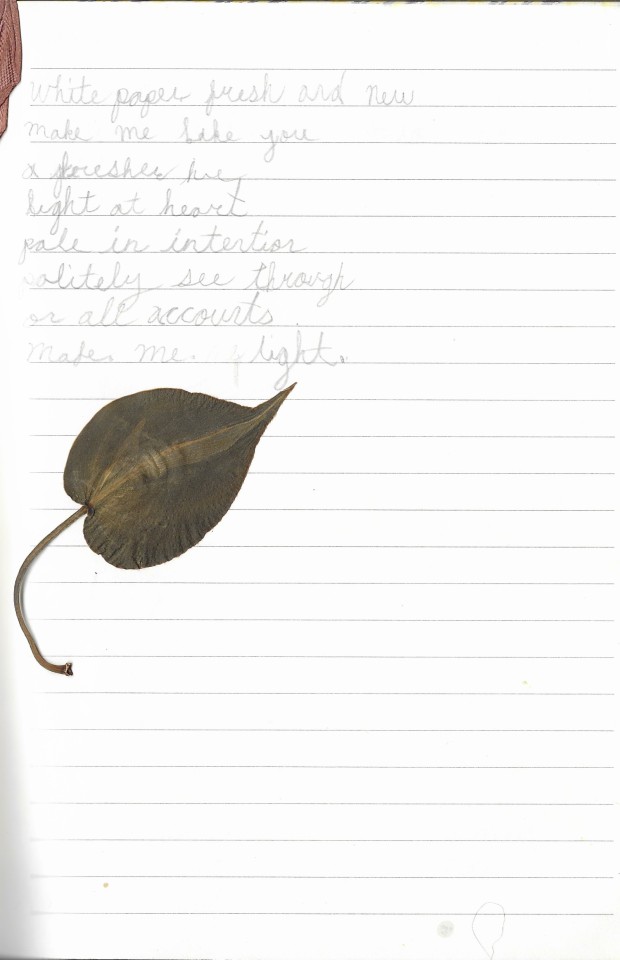 White paper fresh and new
make me like you
a fresher hue
light at heart
pale in intention
politely see through
on all accounts
Make me light.